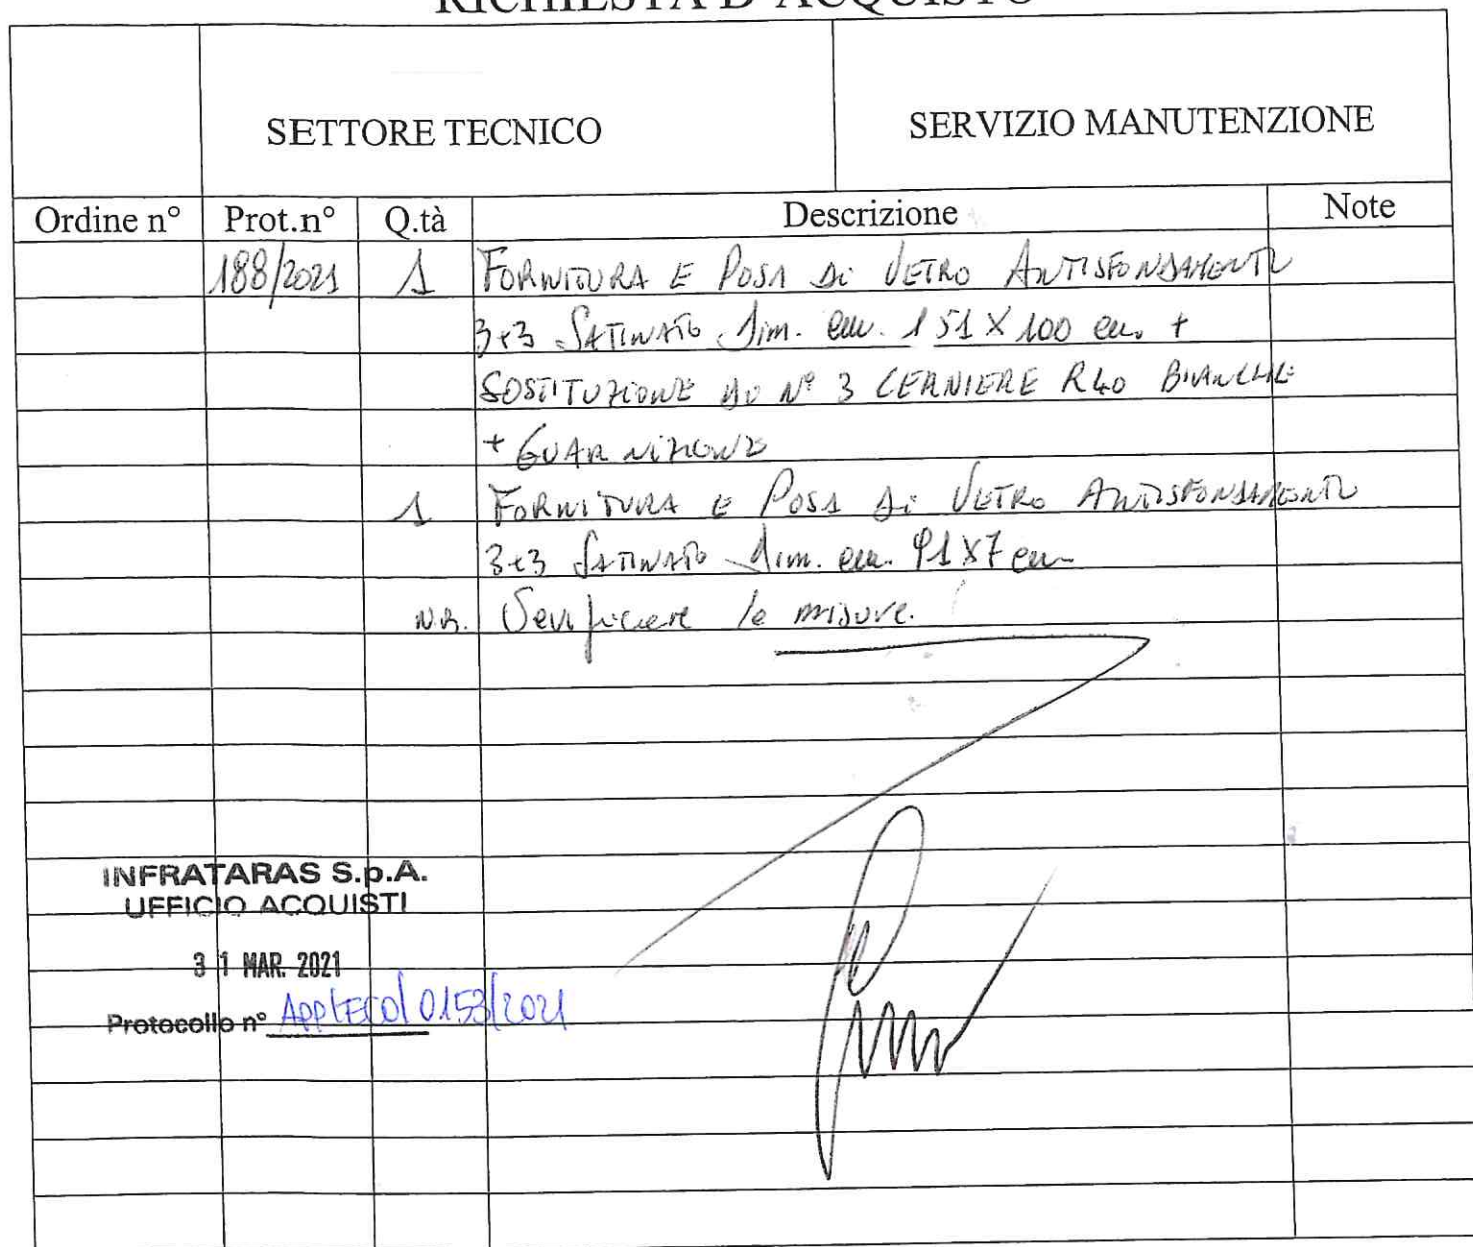 RICHIESTA D'ACQUISTO
SETTORE TECNICO SERVIZIO MANUTENZIONE
Ordine n° Prot.n° Q.tà Descrizione Note
188/2021 1 FORNITURA E POSA di VETRO ANTISFONDAMENTO
3+3 SATINATO dim. cm. 151 X 100 cm. +
SOSTITUZIONE DI N° 3 CERNIERE R40 BIANCHE
+ GUARNIZIONE
1 FORNITURA E POSA di VETRO ANTISFONDAMENTO
3+3 SATINATO dim. cm. 91X7 cm
N.B. Verificare le misure.
INFRATARAS S.p.A.
UFFICIO ACQUISTI
31 MAR. 2021
Protocollo n°